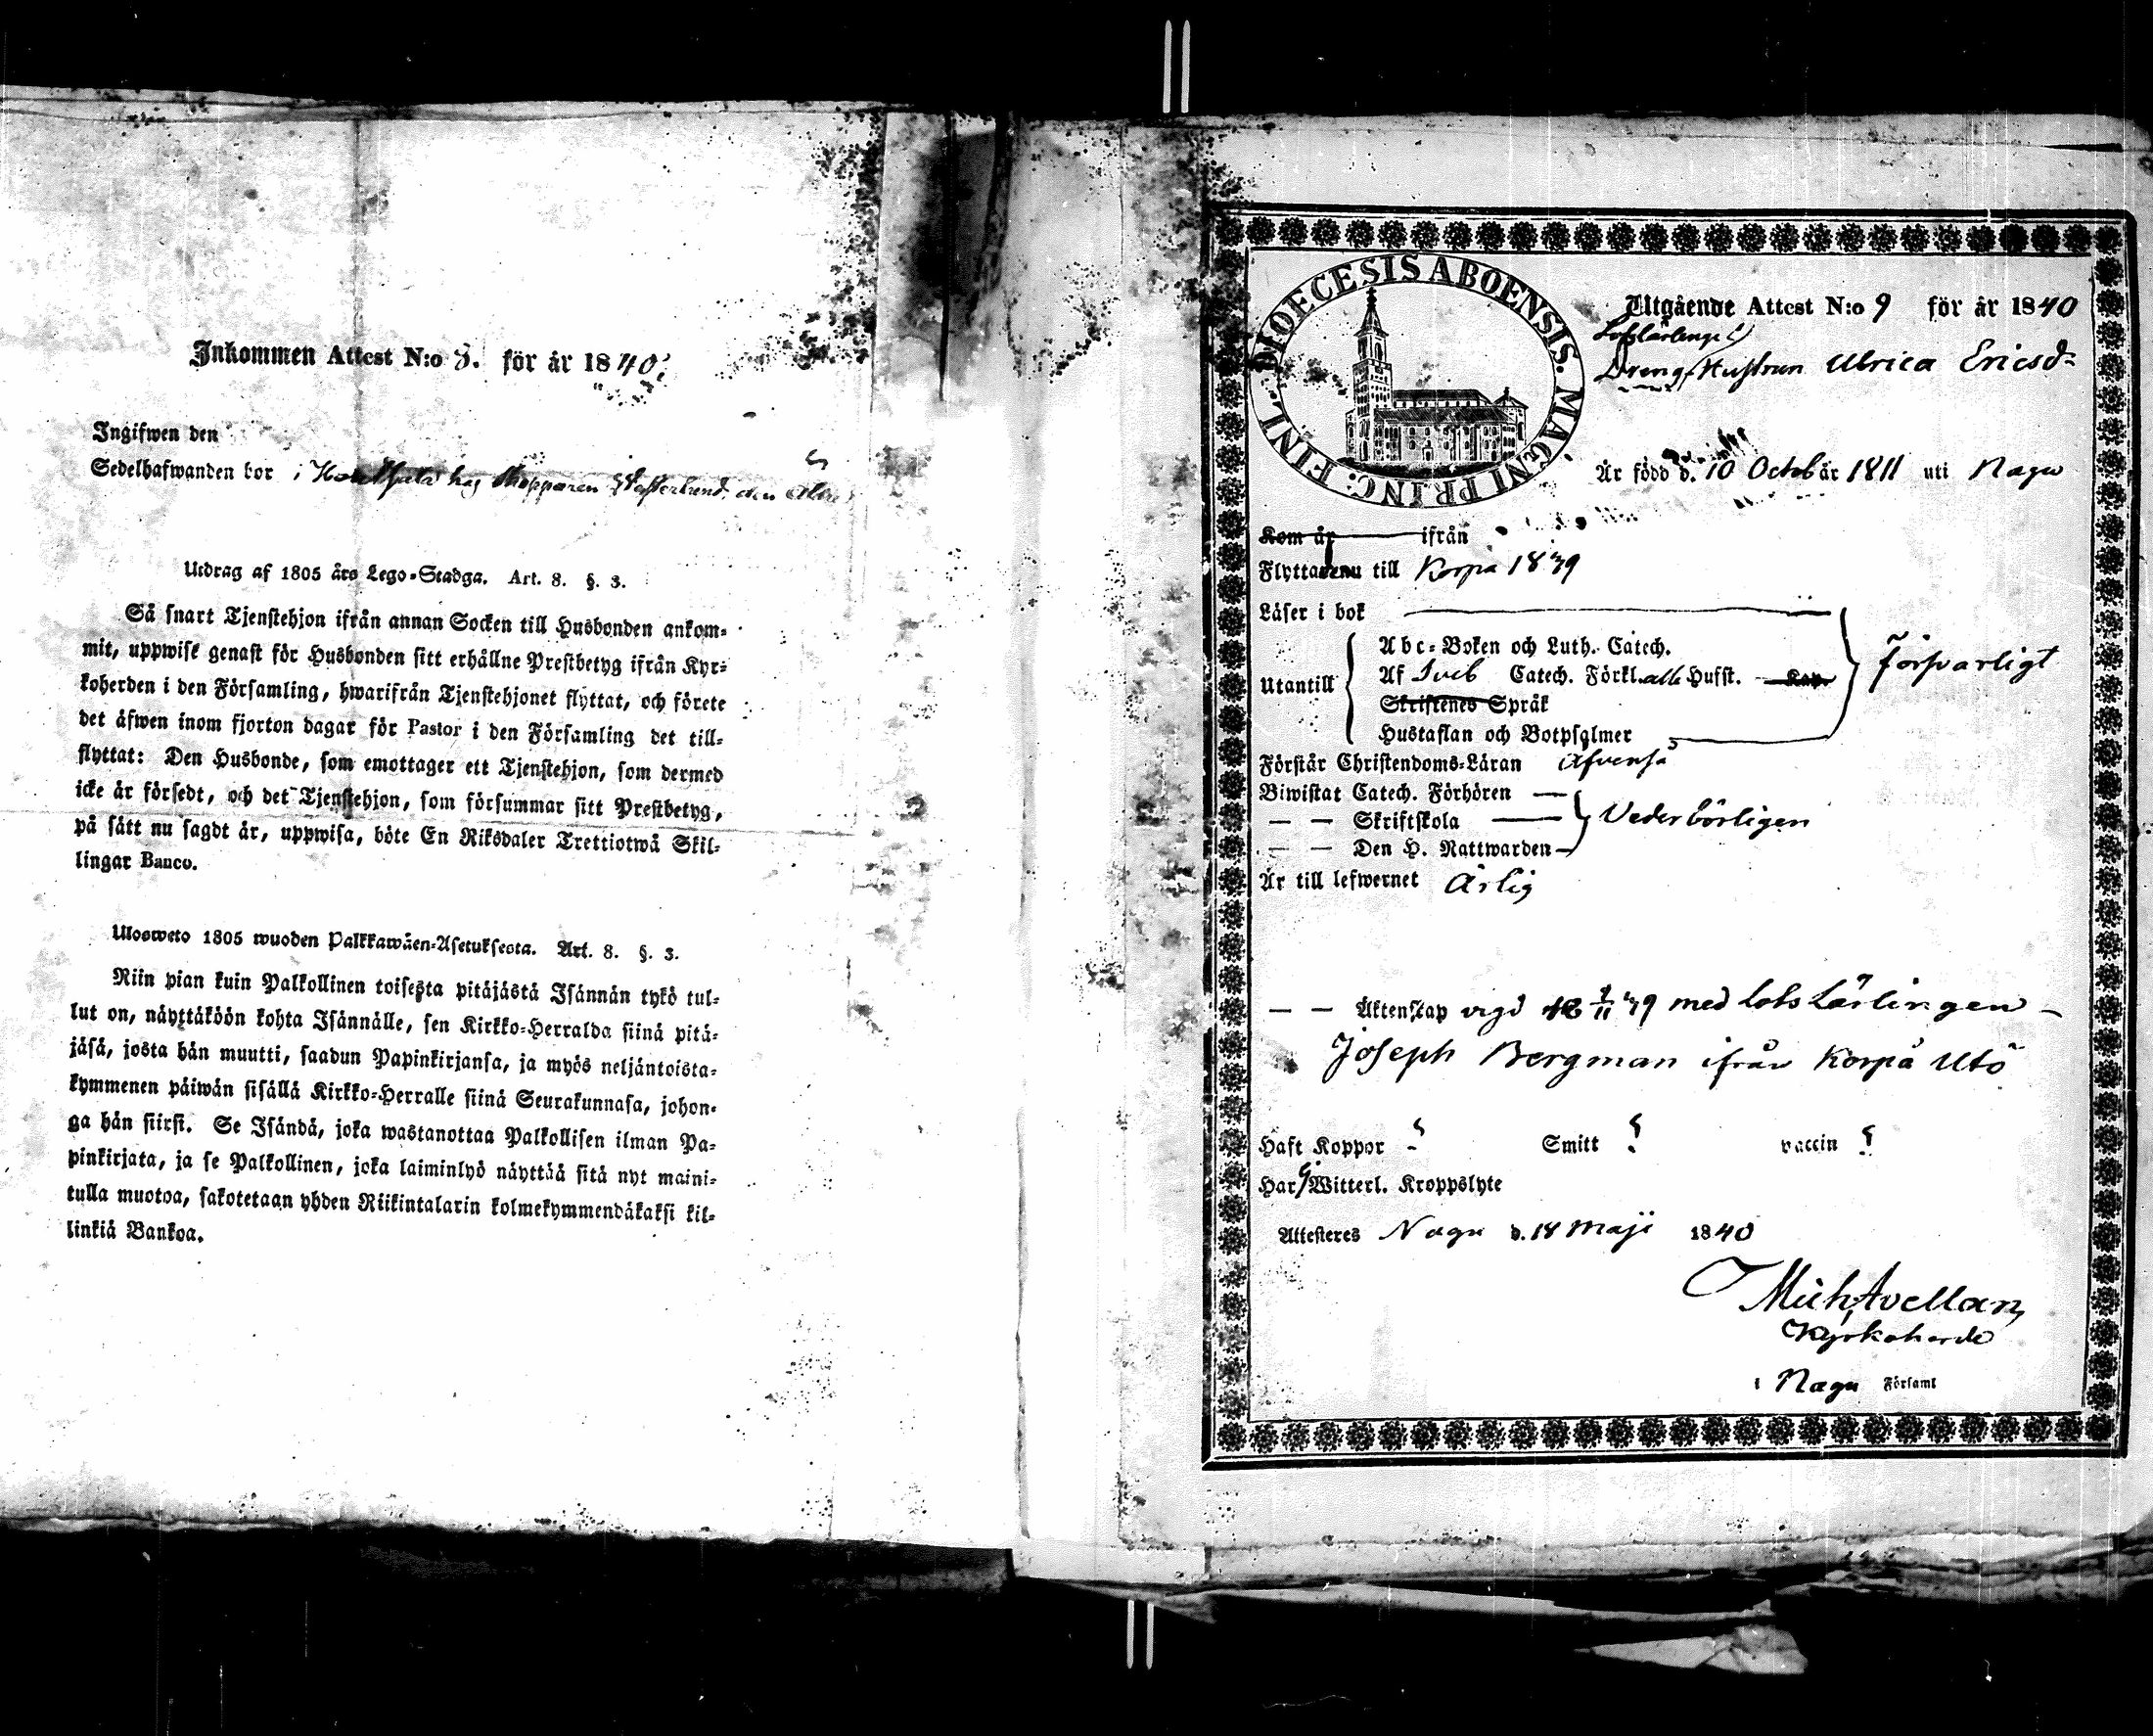 Inkommen Attest N:o 8. för år 1840.
Ingifwen den
Sedelhafwanden bor i hos Skepparen Westerlund den äldre
Utdrag af 1805 års Lego-Stadga. Art. 8. §. 3.
Så snart Tjenstehjon ifrån annan Socken till Husbonden ankom-
mit, uppwise genast för Husbonden sitt erhållne Prestbetyg ifrån Kyr-
koherden i den Församling, hwarifrån Tjenstehjonet flyttat, och förete
det äfwen inom fjorton dagar för Pastor i den Församling det till-
flyttat: Den Husbonde, som emottager ett Tjenstehjon, som dermed
icke är försedt, och det Tjenstehjon, som försummar sitt Prestbetyg,
på sätt nu sagdt är, uppwisa, böte En Riksdaler Trettiotwå Skil-
lingar Banco.
Ulosweto 1805 wuoden Palkkawäen-Asetuksesta. Art. 8. §. 3.
Niin pian kuin Palkollinen toisesta pitäjästä Isännän tykö tul-
lut on, näyttäköön kohta Isännälle, sen Kirkko-Herralda siinä pitä-
jäsä, josta hän muutti, saadun Papinkirjansa, ja myös neljäntoista-
kymmenen päiwän sisällä Kirkko-Herralle siinä Seurakunnasa, johon-
ga hän siirsi. Se Isändä, joka wastanottaa Palkollisen ilman Pa-
pinkirjata, ja se Palkollinen, joka laiminlyö näyttää sitä nyt maini-
tulla muotoa, sakotetaan yhden Riikintalarin kolmekymmendäkaksi kil-
linkiä Bankoa.
DIOECESIS ABOENSIS. MAGNI PRINC: FINL.
Utgående Attest N:o 9 för år 1840
Lotslärlings
Dreng Hustrun Ulrica Ericsd:
Är född d. 10 Octob år 1811 uti Nagu
Kom år ifrån
Flyttade till Korpå 1839
Läser i bok
Abc-Boken och Luth. Catech.
Utantill Af Sveb Catech. Förkl. alla Husst. Kap.
Skriftenes Språk
Hustaflan och Botpsalmer
Försvarligt
Förstår Christendoms-Läran Äfvenså
Biwistat Catech. Förhören
— — Skriftskola Vederbörligen
— — Den H. Nattwarden
Är till lefwernet Ärlig
— — Äktenskap vigd 39 med Lots Lärlingen
Joseph Bergman ifrån Korpå Utö
Haft Koppor ? Smitt ? vaccin ?
Har ej Witterl. Kroppslyte
Attesteres Nagu d. 18 Maji 1840
Mich Avellan,
Kyrkoherde
i Nagu Församl